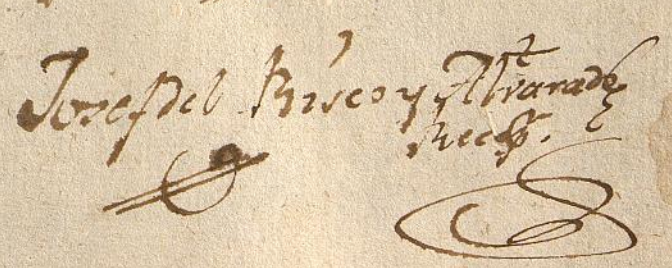 Josef del Risco y Alvarado